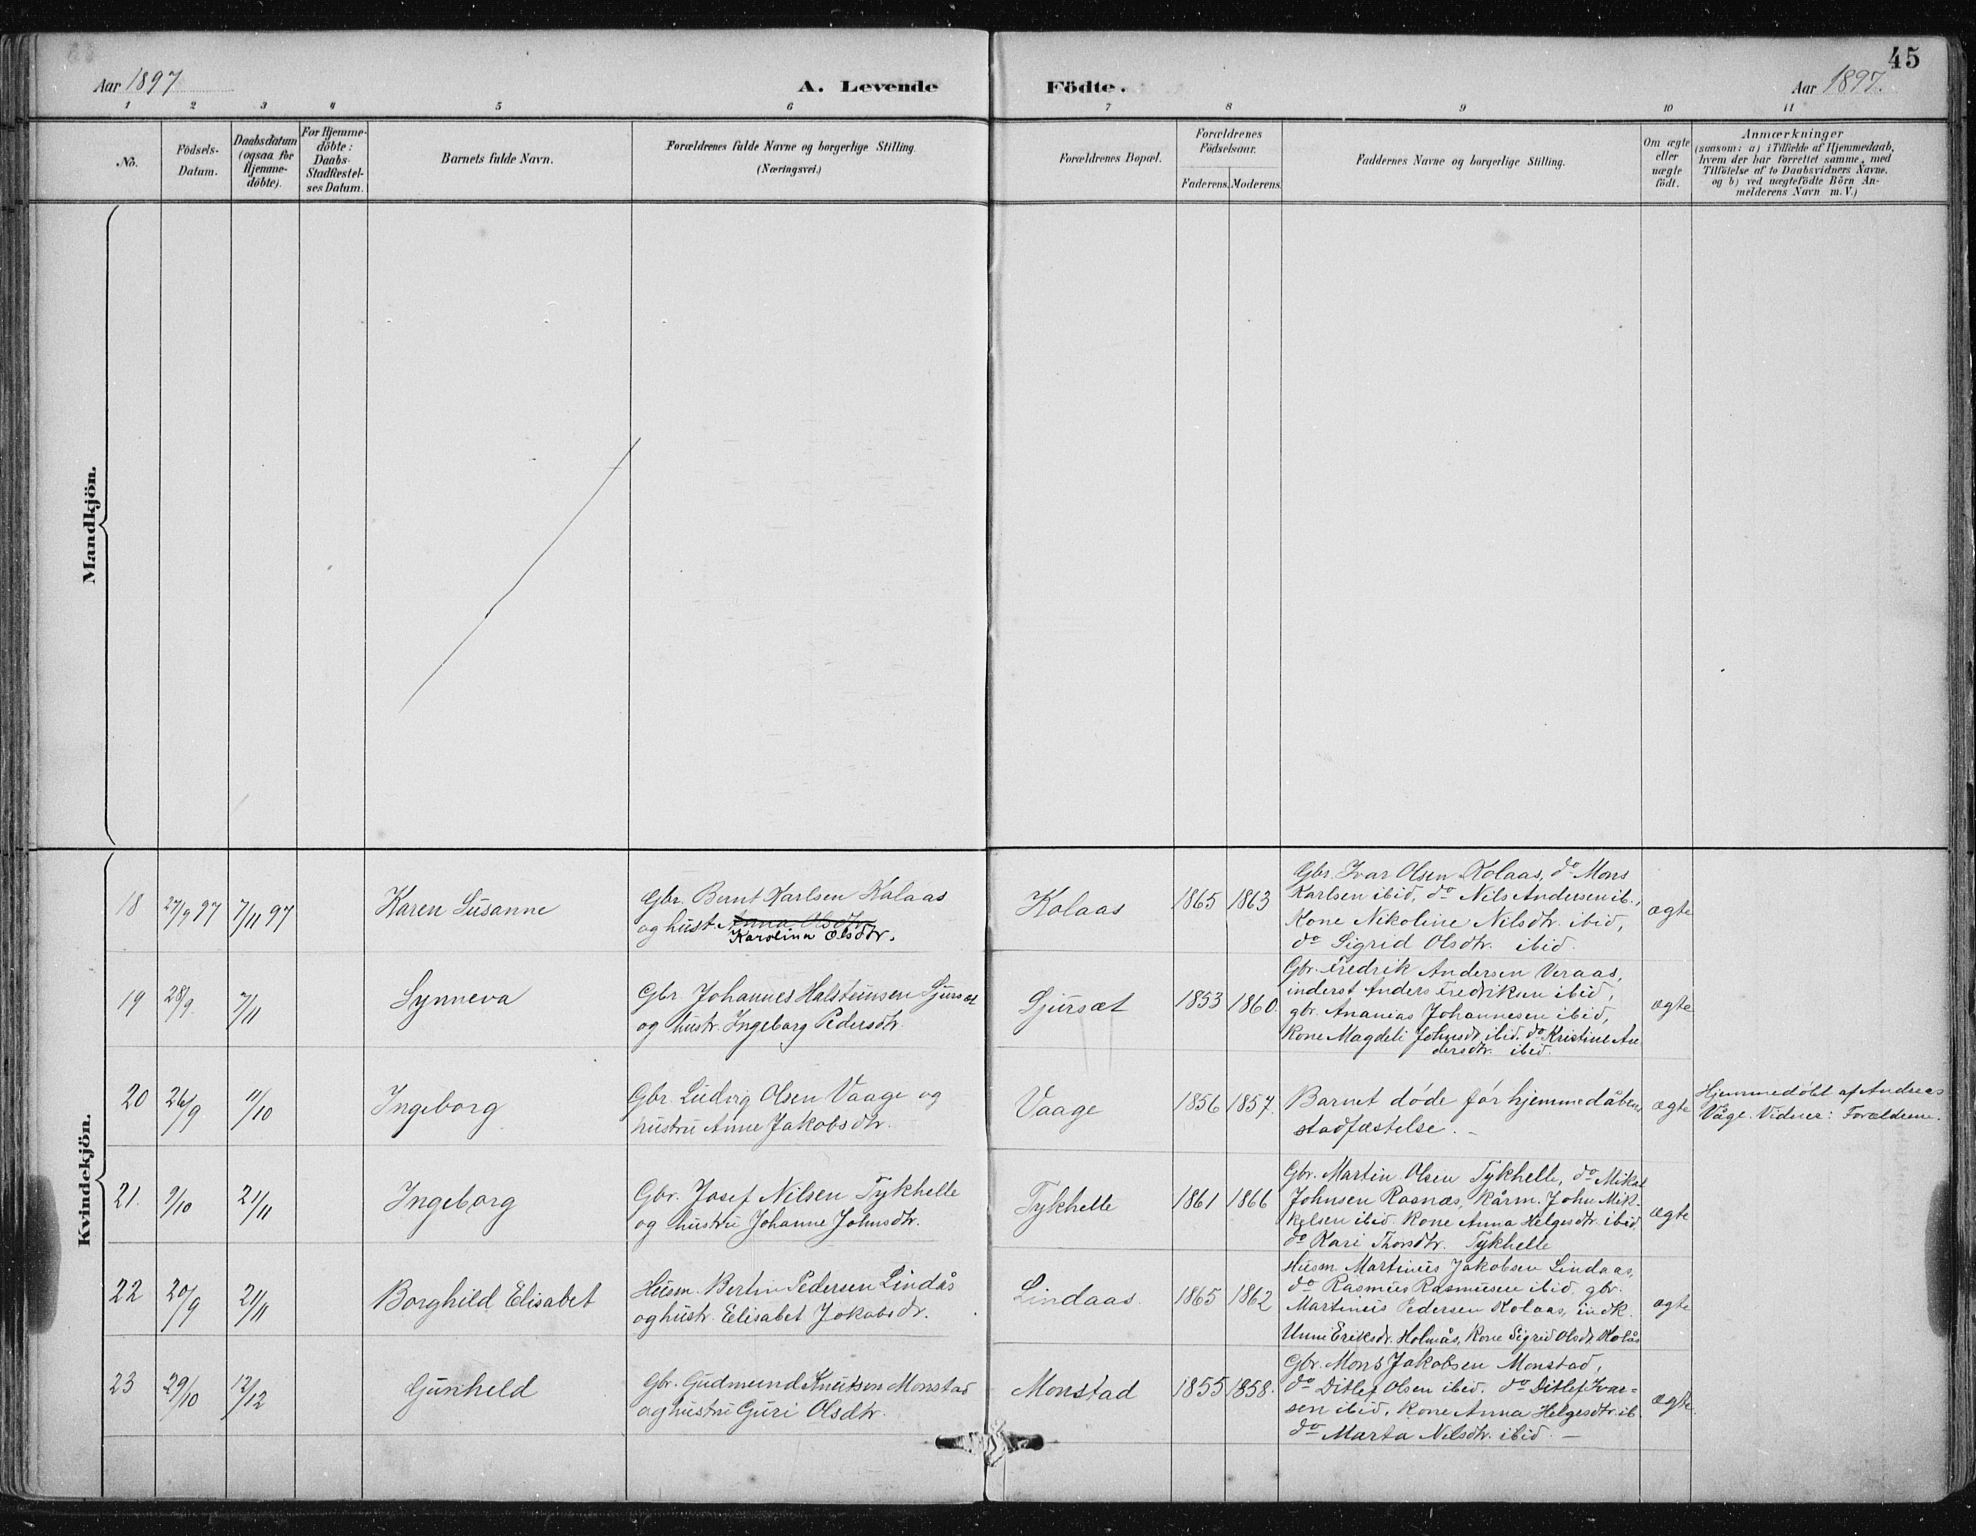 45
Aar 1897 A. Levende Födte. Aar 1897.
1 2 3 4 5 6 7 8 9 10 11
No.
Födsels-
Datum.
Daabsdatum
(ogsaa for
Hjemme-
döbte).
For Hjemme-
döbte:
Daabs-
Stadfæstel-
ses Datum.
Barnets fulde Navn.
Forældrenes fulde Navne og borgerlige Stilling.
(Næringsvei.)
Forældrenes Bopæl.
Forældrenes
Födselsaar.
Faderens. Moderens.
Faddernes Navne og borgerlige Stilling.
Om ægte
eller
uægte
födt.
Anmærkninger
(saasom: a) i Tilfælde af Hjemmedaab,
hvem der har forrettet samme, med
Tilföielse af to Daabsvidners Navne,
og b) ved uægtefödte Börn An-
melderens Navn m. V.)
Mandkjön.
Kvindekjön.
18 27/9 97 7/11 97 Karen Susanne
Gbr. Bernt Karlsen Kolaas
og hust. Anna Olsdtr.
Karolina Olsdtr.
Kolaas 1865 1863
Gbr. Ivar Olsen Kolaas, do Mons
Karlsen ibid, do Nils Andersen ib.,
Kone Nikoline Nilsdtr. ibid,
do Sigrid Olsdtr. ibid.
ægte
19 28/9. 7/11 Synneva
Gbr. Johannes Halstunsen Sjursæt
og hustr. Ingeborg Pedersdtr.
Sjursæt 1853 1860.
Gbr. Fredrik Andersen Veraas,
inderst Anders Fredriksen ibid,
gbr. Ananias Johannesen ibid,
Kone Magdeli Johnsdt. ibid. do Kristine An
dersdtr. ibid.
ægte
20 26/9 11/10 Ingeborg
Gbr. Ludvig Olsen Vaage og
hustru Anne Jakobsdtr.
Vaage 1856 1857.
Barnet døde før hjemmedåbens
stadfæstelse. –
ægte
Hjemmedöbt af Andreas
Våge. Vidner: Forældrene.
21. 9/10 21/11 Ingeborg
Gbr. Josef Nilsen Tykhelle
og hustru Johanne Johnsdtr.
Tykhelle 1861 1866
Gbr. Martin Olsen Tykhelle, do Mikel
Johnsen Rasnæs, kårm. John Mik-
kelsen ibid. Kone Anna Helgesdtr. ibid.
do Kari Thorsdtr. Tykhelle
ægte
22 20/9 21/11 Borghild Elisabet
Husm. Bertin Pedersen Lindås
og hustr. Elisabet Jakobsdr.
Lindaas. 1865 1862
Husm. Martinus Jakobsen Lindaas,
do Rasmus Rasmusen ibid. gbr.
Martinus Pedersen Kolaas, indk.
Unni Eriksdr. Holmås, Kone Sigrid Olsdt. Kolås
ægte
23 29/10 12/12 Gunheld
Gbr. Gudmund Knutsen Monstad
og hustru Guri Olsdtr.
Monstad 1855 1858.
Gbr. Mons Jakobsen Monstad,
do Ditlef Olsen ibid. do Ditlef Ivar-
sen ibid, Kone Anna Helgesdtr. ib.
do Marta Nilsdtr. ibid. –
ægte.